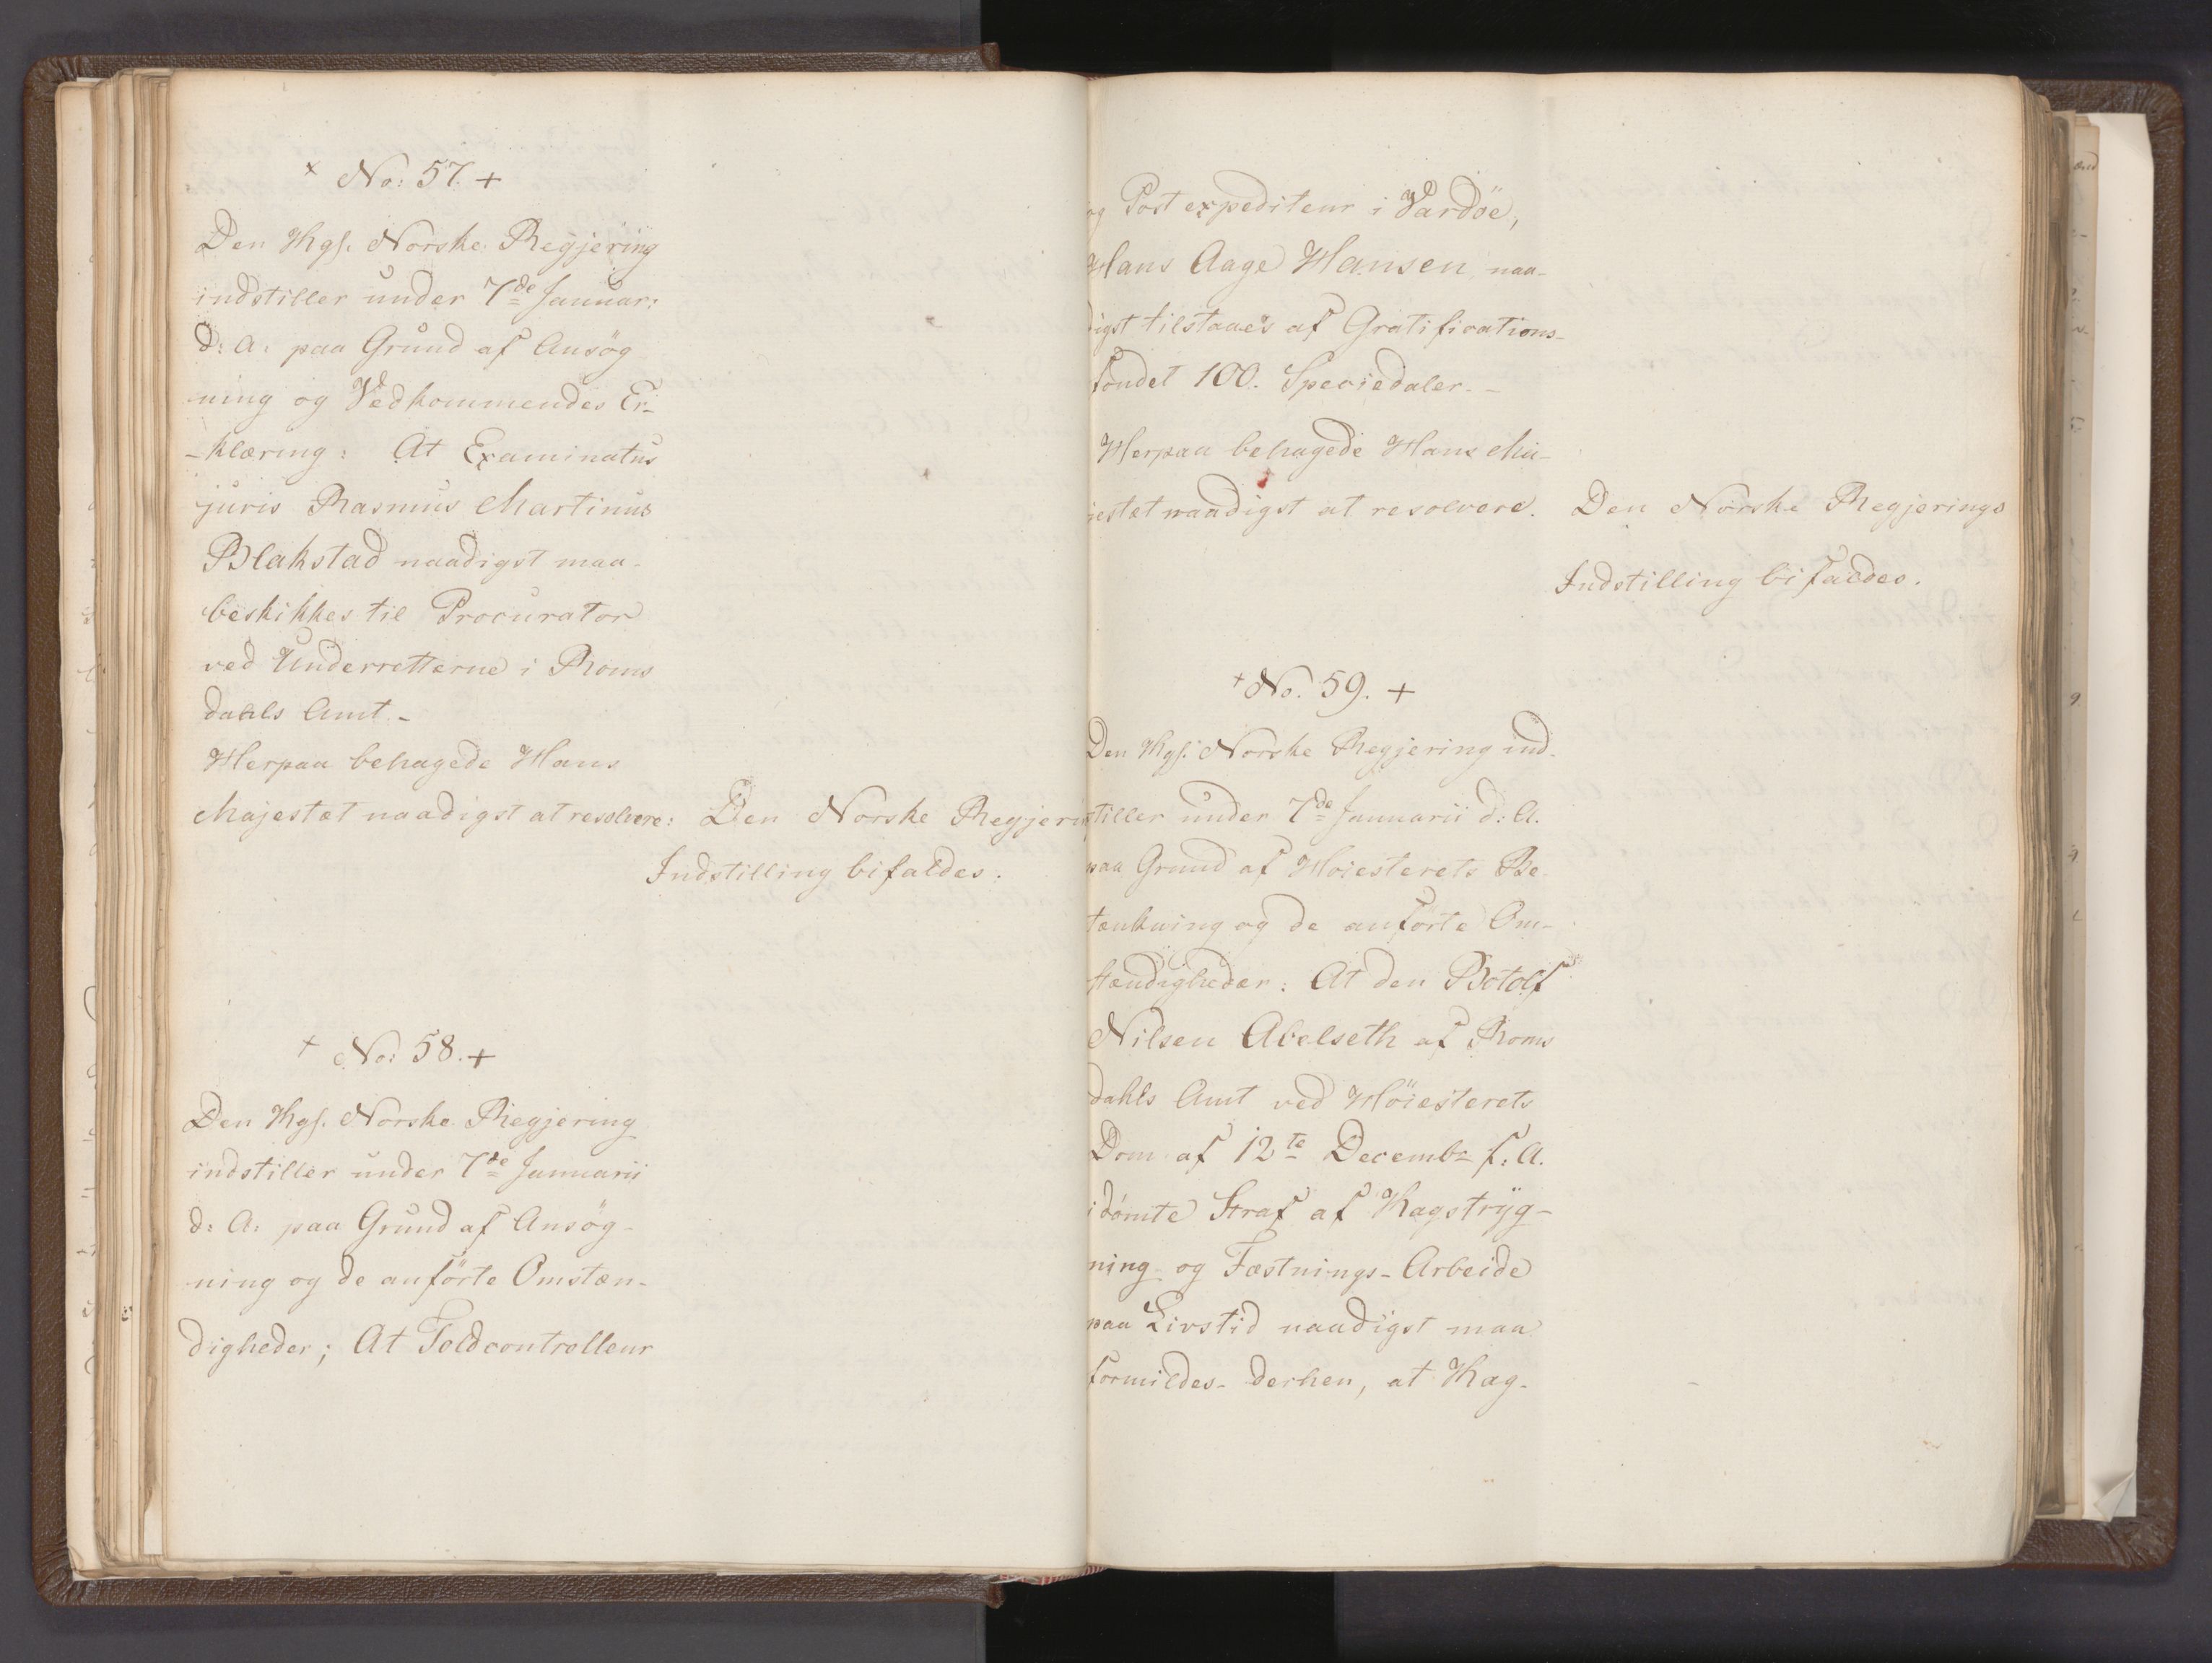 + No: 57. +
Den Kgs. Norske Regjering
indstiller under 7de Januar:
d: A: paa Grund af Ansög
ning og Vedkommendes Er-
-klæring: At Examinatus
juris Rasmus Martinus
Blakstad naadigst maa
beskikkes til Procurator
ved Underretterne i Roms
dahls Amt -
Herpaa behagede Hans
Majestæt naadigst at resolvere: Den Norske Regjerin
Indstilling bifaldes.
+ No: 58. +
Den Kgs. Norske Regjering
indstiller under 7de Januarii
d: A: paa Grund af Ansög-
ning og de anförte Omstæn-
digheder; At Toldcontrolleur
og Postexpediteur i Vardöe,
Hans Aage Hansen naa-
digst tilstaaes af Gratifications-
fondet 100. Speciedaler. -
Herpaa behagede Hans Ma-
jestæt naadigst at resolvere. Den Norske Regjerings
Indstilling bifaldes.
+ No. 59. +
Den Kgs. Norske Regjering ind-
stiller under 7de Januarii d: A.
paa Grund af Höiesterets Be
tænkning og de anförte Om-
stændigheder: At den Botolf
Nilsen Abelseth af Roms
dahls Amt ved Höiesterets
Dom af 12te Decembr f: A.
idömte Straf af Kagstryg-
ning og Fæstnings-Arbeide
paa Livstid naadigst maa
formildes derhen, at Kag-